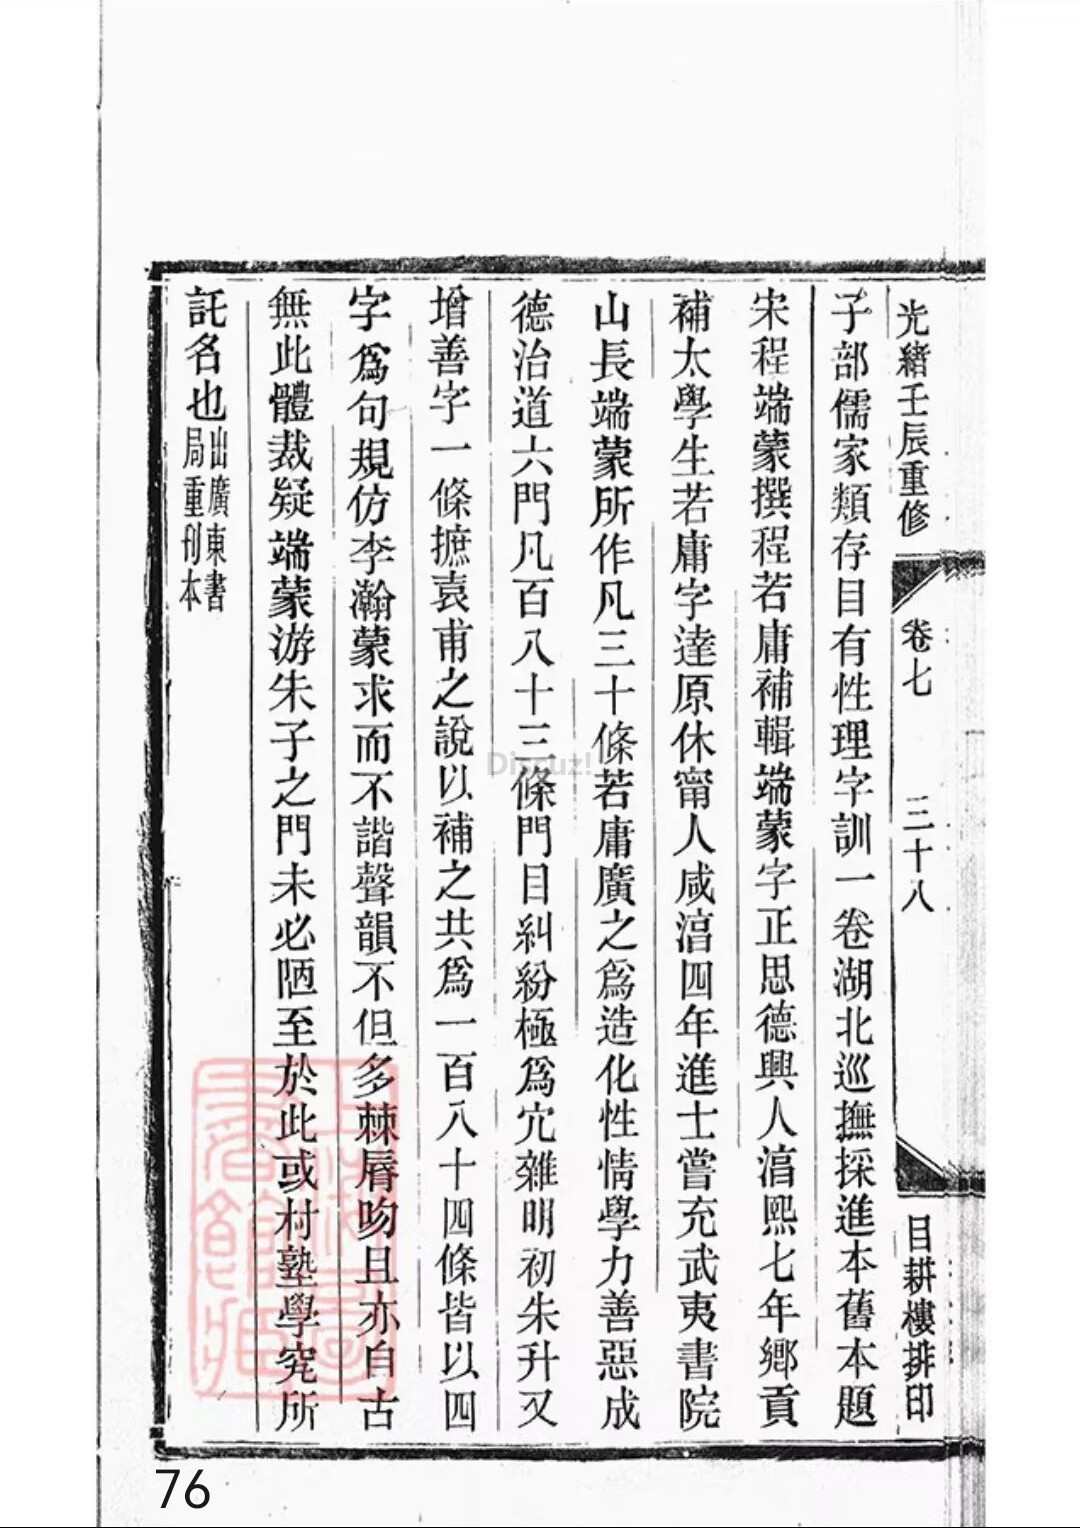 光緒壬辰重修 卷七 三十八 目耕樓排印
子部儒家類存目有性理字訓一卷湖北巡撫採進本舊本題
宋程端蒙撰程若庸補輯端蒙字正思德興人淳熙七年鄉貢
補太學生若庸字達原休甯人咸淳四年進士嘗充武夷書院
山長端蒙所作凡三十條若庸廣之爲造化性情學力善惡成
德治道六門凡百八十三條門目糾紛極爲冗雜明初朱升又
增善字一條摭袁甫之說以補之共爲一百八十四條皆以四
字爲句規仿李瀚蒙求而不諧聲韻不但多棘脣吻且亦自古
無此體裁疑端蒙游朱子之門未必陋至於此或村塾學究所
託名也出廣東書局重刊本
Discuz!
76